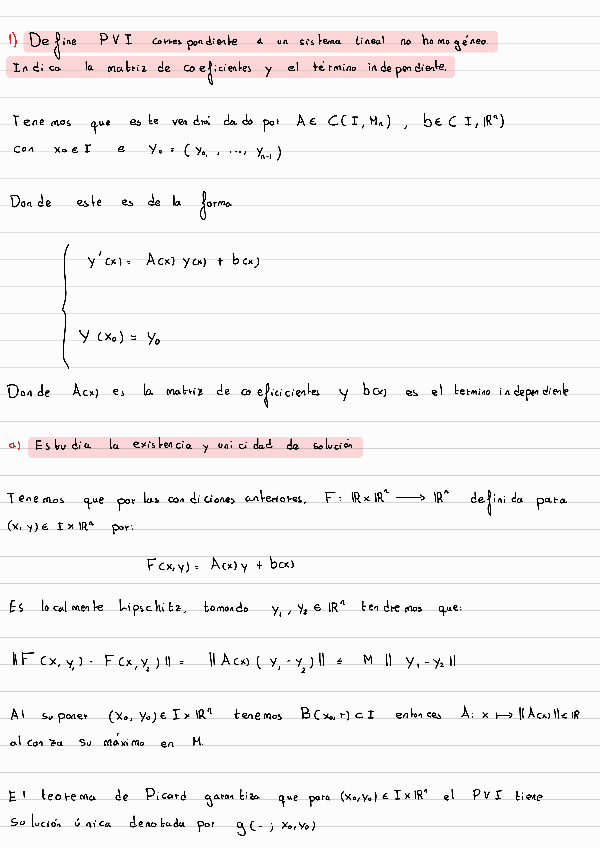 1) Define PVI correspondiente a un sistema lineal no homogéneo.
Indica la matriz de coeficientes y el término independiente.
Tenemos que este vendrá dado por A ∈ C(I, Mₙ), b ∈ C I, ℝⁿ)
con x₀ ∈ I e Y₀ = (y₀, ..., yₙ₋₁)
Donde este es de la forma
y'(x) = A(x) y(x) + b(x)
Y(x₀) = y₀
Donde A(x) es la matriz de coeficicientes y b(x) es el termino independiente
a) Estudia la existencia y unicidad de solución
Tenemos que por las condiciones anteriores, F: ℝ×ℝⁿ ⟶ ℝⁿ definida para
(x, y) ∈ I × ℝⁿ por:
F(x,y) = A(x)y + b(x)
Es localmente Lipschitz, tomando y₁, y₂ ∈ ℝⁿ tendremos que:
‖F(x, y₁) - F(x, y₂)‖ = ‖A(x)(y₁ - y₂)‖ ≤ M ‖y₁ - y₂‖
Al suponer (x₀, y₀) ∈ I × ℝⁿ tenemos B(x₀, r) ⊂ I entonces A: x ↦ ‖A(x)‖ ∈ ℝ
alcanza su máximo en M.
El teorema de Picard garantiza que para (x₀, y₀) ∈ I × ℝⁿ el PVI tiene
solución única denotada por g(- ; x₀, y₀)